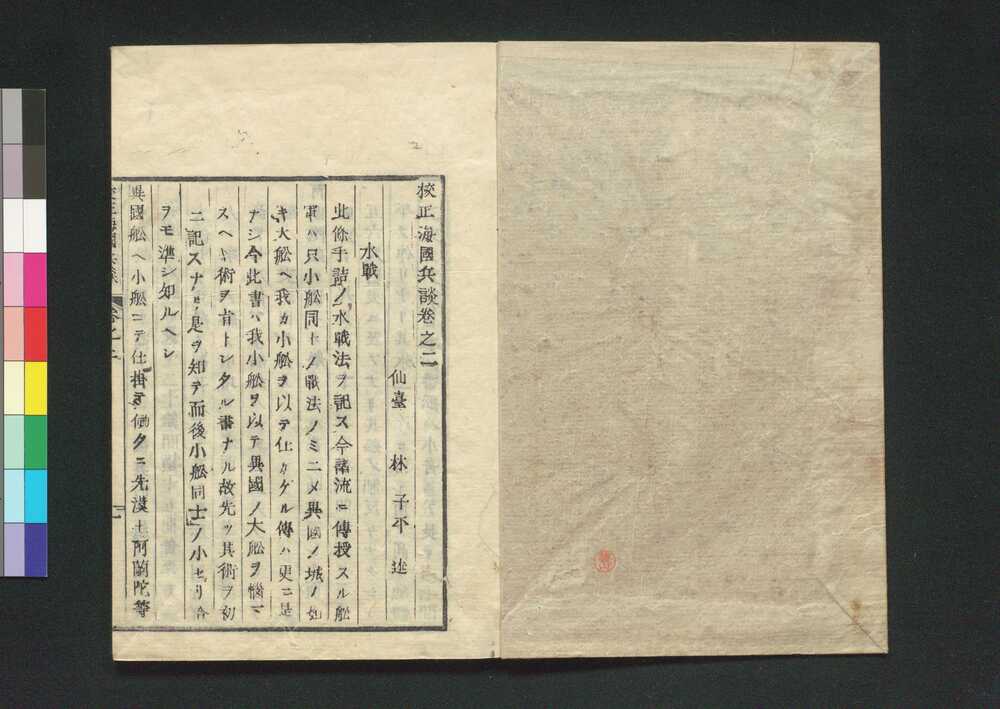 挍正海國兵談卷之二
仙臺 林 子平 述
水戰
此條手詰ノ水戰法ヲ記ス今諸流ニ傳授スル舩
軍ハ只小舩同士ノ戰法ノミニメ異國ノ城ノ如
キ大舩ヘ我カ小舩ヲ以テ仕カゲル傳ハ更ニ是
ナシ今此書ハ我小舩ヲ以テ異國ノ大舩ヲ惱マ
スヘキ術ヲ肯トシタル書ナル故先ッ其術ヲ初
ニ記スナリ是ヲ知テ而後小舩同士ノ小セリ合
ヲモ準シ知ルヘシ
異國舩ヘ小舩ニテ仕掛テ働クニ先漢土阿蘭陀等